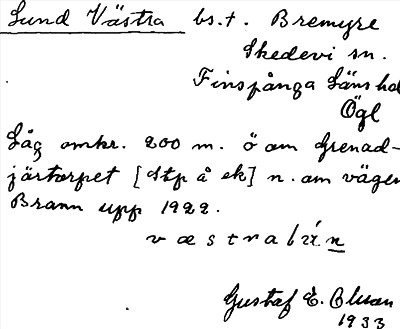 Lund Västra bs.t. Bremyre
Skedevi sn.
Finspånga Läns hd
Ögl
Låg omkr. 200 m. ö om Grenad-
järtorpet [Stp å ek] n. om vägen
Brann upp 1922.
væstra
Gustaf E. Olsson
1933